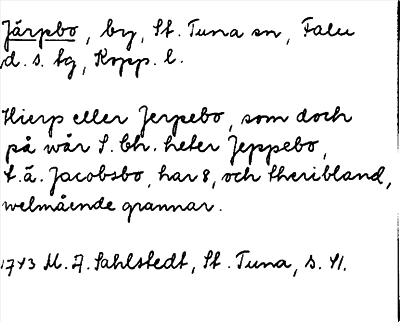 Järpbo, by, St. Tuna sn, Falu
d. s. tg, Kopp. l.
Hierp eller Jerpebo, som doch
på wår S. bh. heter Jeppebo,
t. ä. Jacobsbo, har 8, och Skeribland,
welmående grannar.
1743 M. A. Sahlstedt, St. Tuna, s. 41.